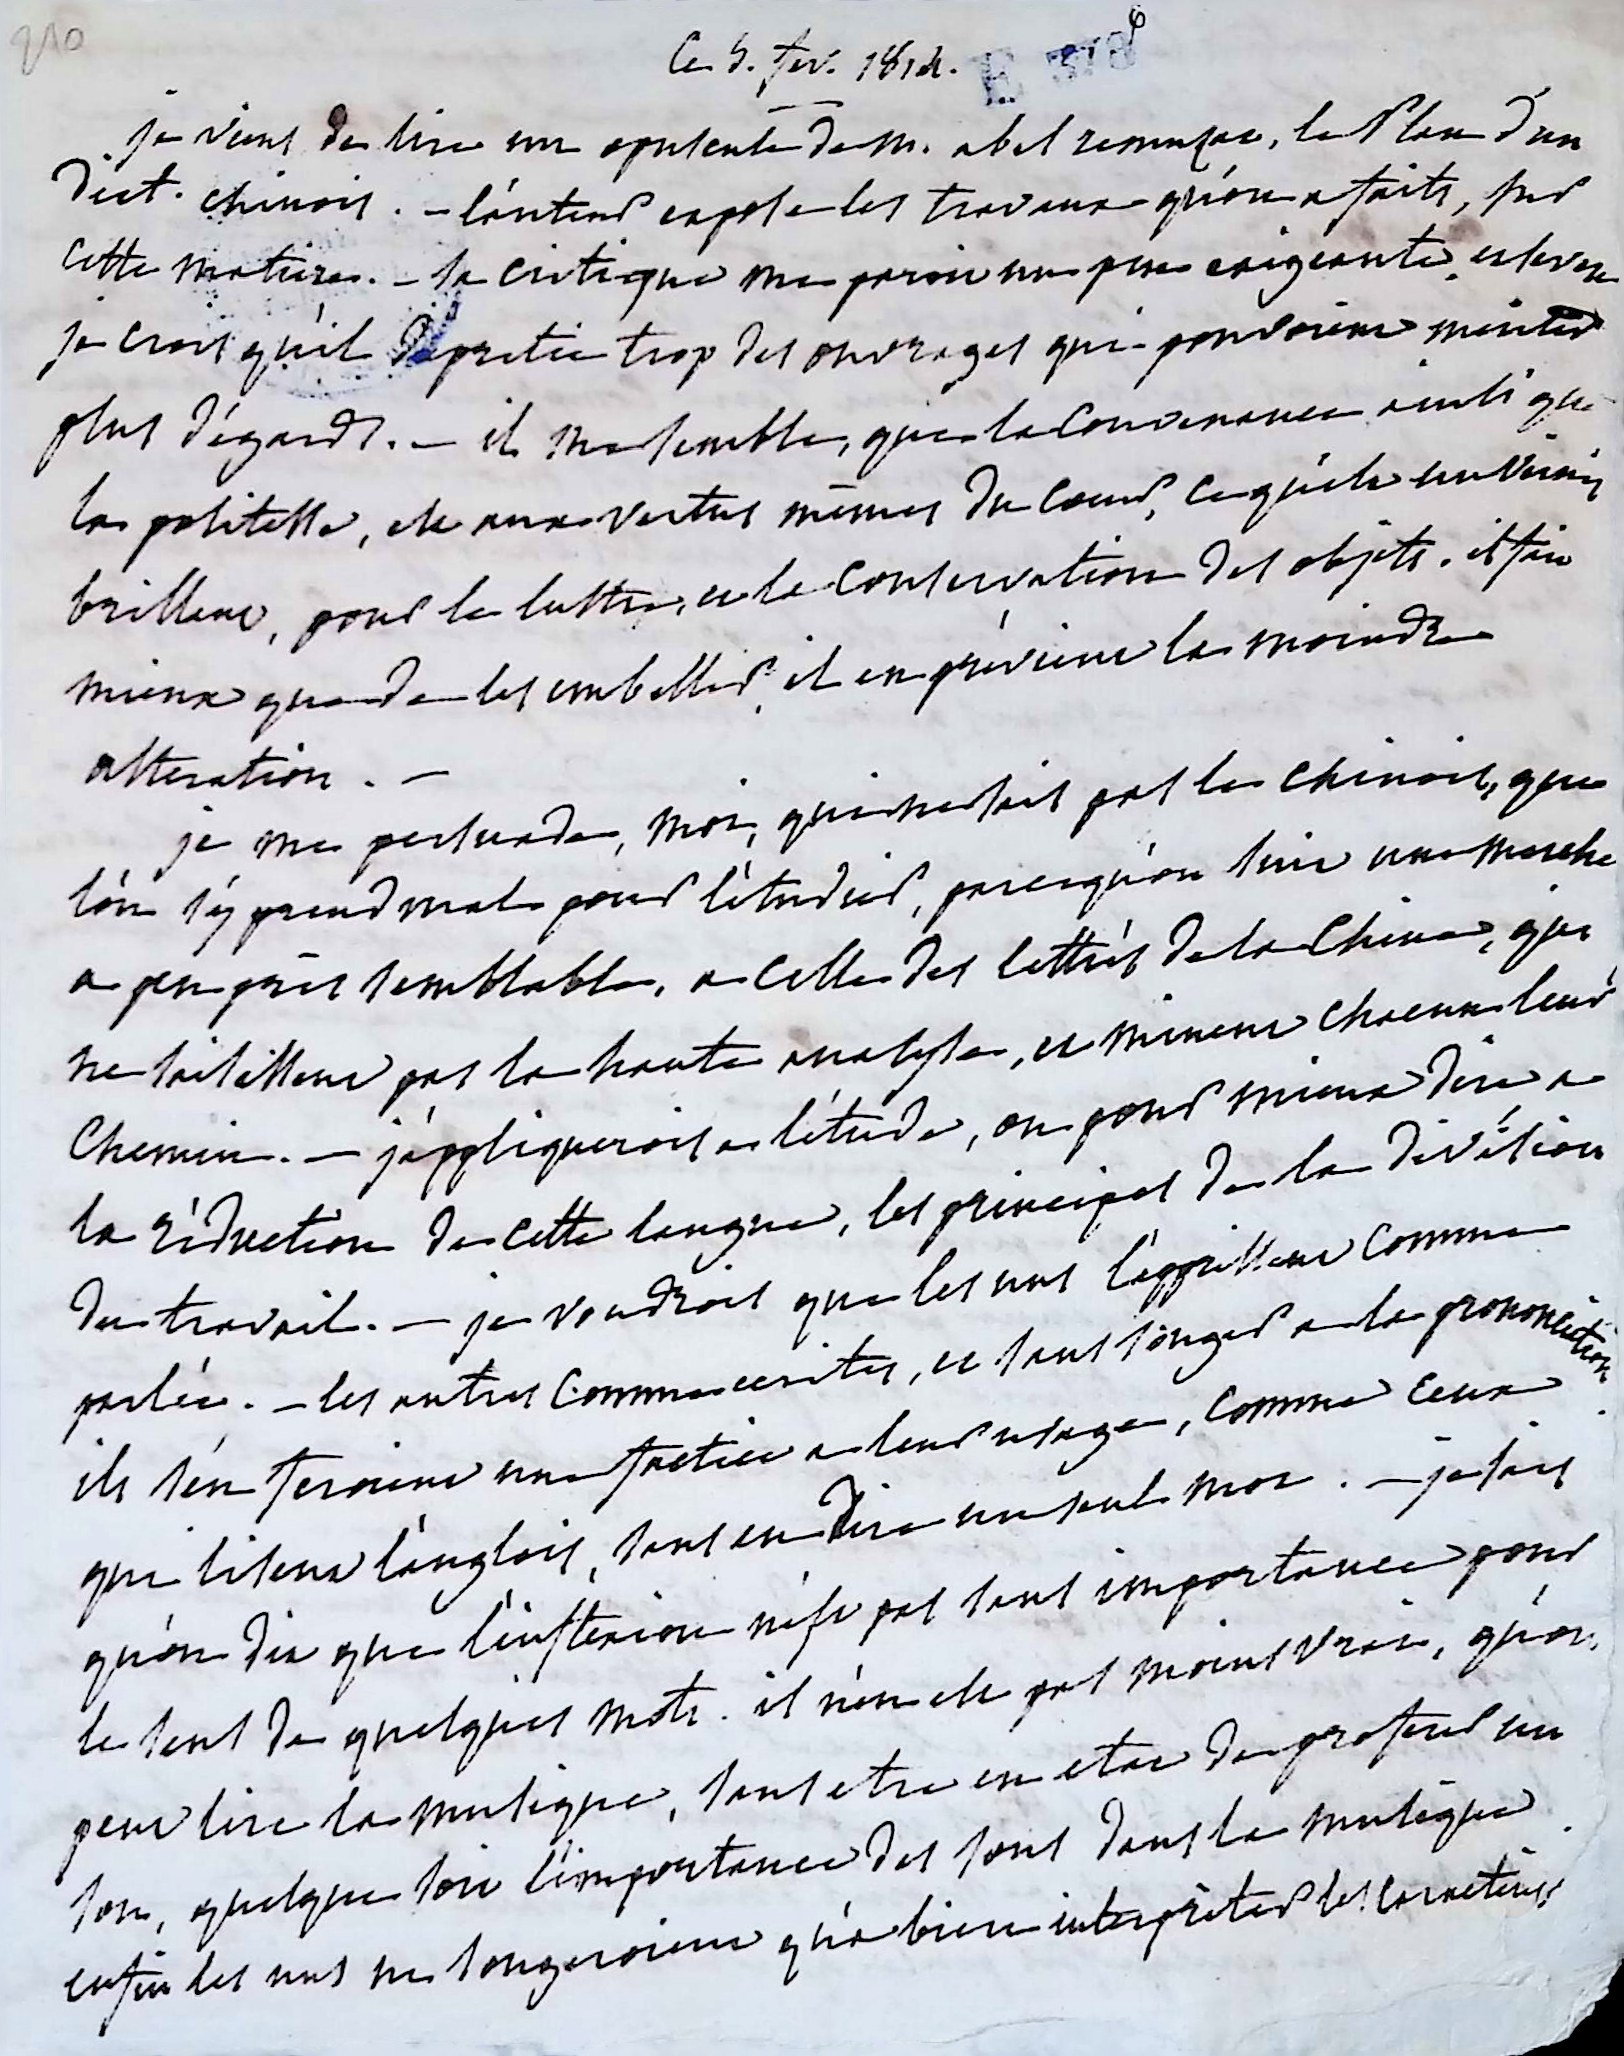 210
Ce 5. fev. 1814. E 378
je viens de lire un opuscule de m. abel remusat, le Plan d'un
dict. chinois. - l'auteur expose les travaux qu'on a faits, sur
cette matiere. - sa critique me paroit un peu exigeante, et
je crois qu'il deprecie trop des ouvrages qui pouvoient meriter
plus d'égards. - il me semble, que la convenance ainsi que
la politesse, est aux vertus mêmes du coeur, ce qu'est un vernis
brillant, pour le lustre, et la conservation des objets. il fait
mieux que de les embellir, il en prévient la moindre
alteration. -
je me persuade, moi, qui ne sais pas le chinois, que
l'on s'y prend mal pour l'étudier, parcequ'on suit une marche
a peu près semblable, a celle des lettrés de la Chine, qui
ne saisissent pas la haute analyse, et minent chacun leur
chemin. - j'appliquerois a l'étude, ou pour mieux dire a
la réduction de cette langue, les principes de la division
du travail. - je voudrois que les uns l'apprissent comme
parlée. - les autres comme ecrite, et sans songer a la prononciation.
ils s'en feroient une factice a leur usage, comme ceux
qui lisent l'anglois, sans en dire un seul mot. - je sais
qu'on dit que l'inflexion n'est pas sans importance pour
le sens de quelques mots. il n'en est pas moins vrai, qu'on
peut lire la musique, sans etre en etat de proferer un
son, quelque soit l'importance des sons dans la musique.
enfin les uns ne songeroient qu'a bien interpréter les caractères